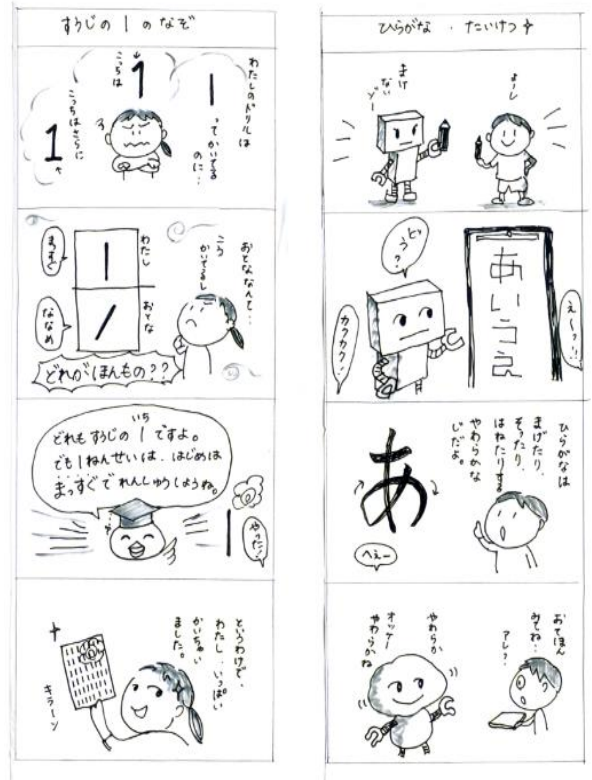 すうじの1のなぞ
わたしのドリルは
1
ってかいてる
のに…
こっちは
1
こっちはさらに
1
おとななんて…
こう
かいてるし
わたし
おとな
まっすぐ
ななめ
どれがほんもの??
いち
どれもすうじの1ですよ。
でも1ねんせいは、はじめは
まっすぐでれんしゅうしようね。
1
やった!
というわけで、
わたし、いっぱい
かいちゃい
ました。
キラーン
ひらがな・たいけつ
よーし
まけ
ない
ゾー
どう?
あいうえ
えーっ!!
カクカク!
ひらがなは
まげたり、
そったり、
はねたりする
やわらかな
じだよ。
あ
へぇー
おてほん
みてね…
アレッ?
やわらか
オッケー
やわらかね